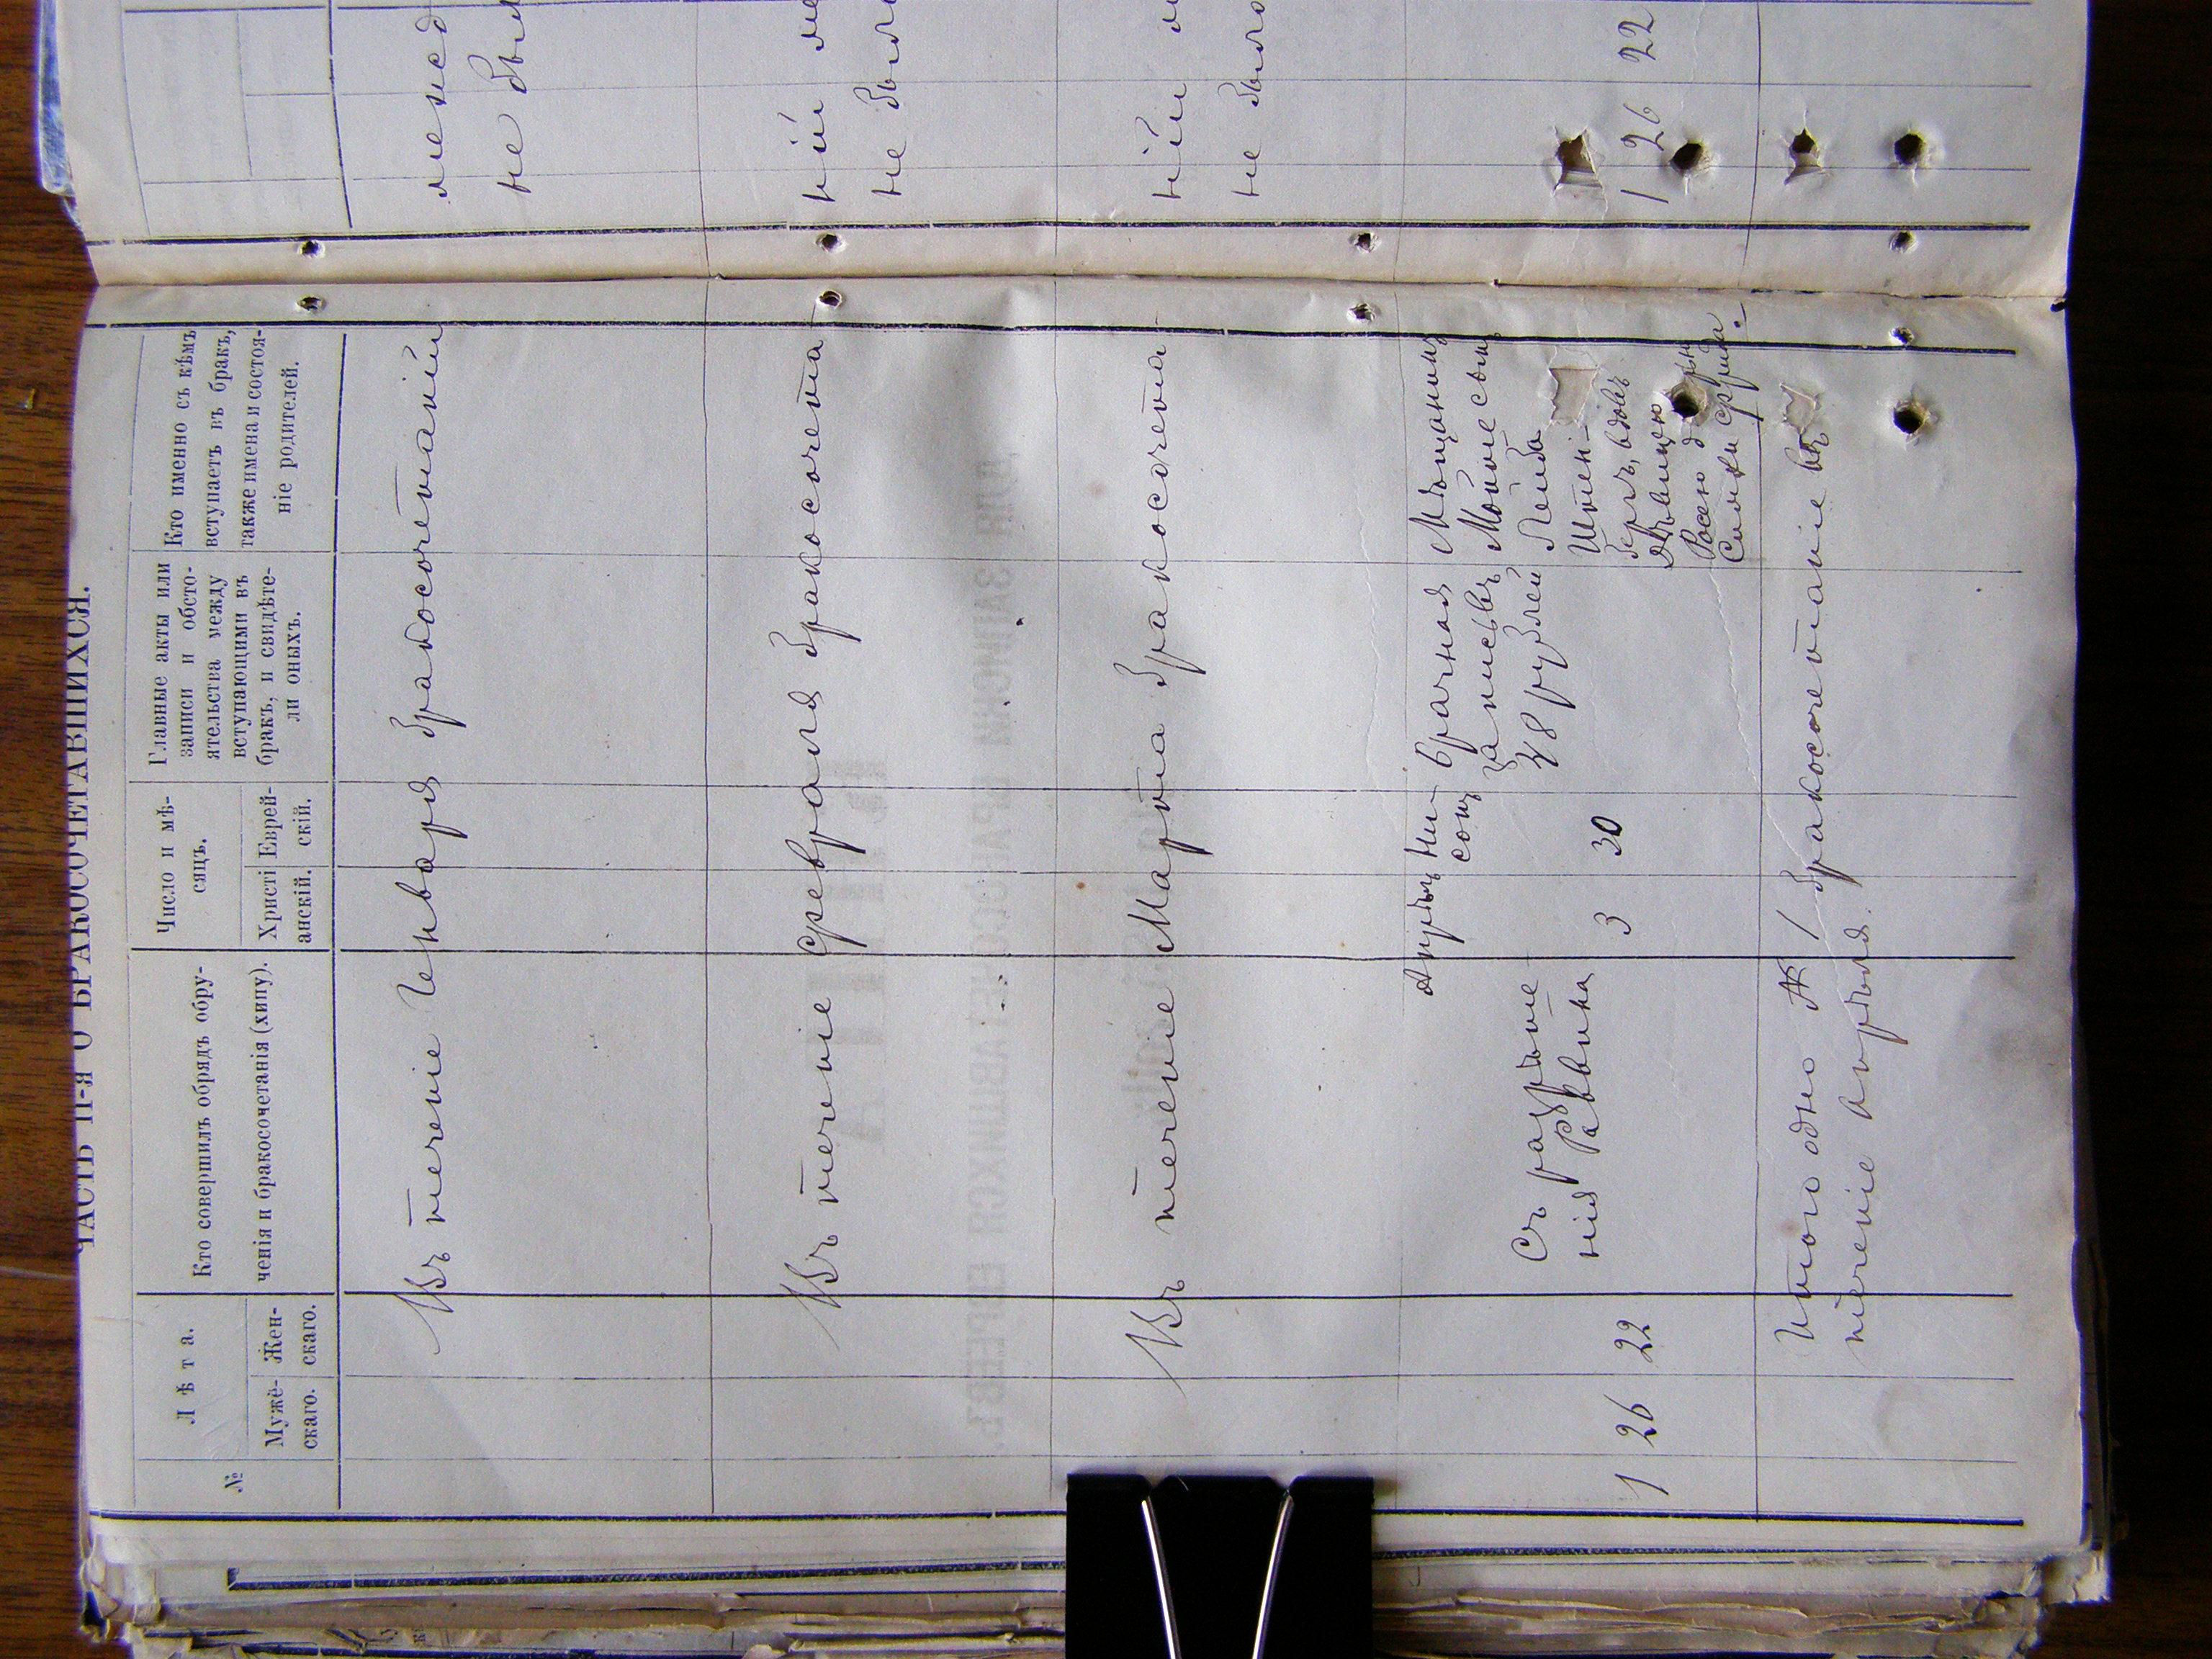 ЧАСТЬ II-я О БРАКОСОЧЕТАВШИХСЯ.
№
Лѣта.
Мужескаго.
Женскаго.
Кто совершилъ обрядъ обру-
ченія и бракосочетанія (хипу).
Число и мѣ-
сяцъ.
Христі
анскій.
Еврей-
скій.
Главные акты или
записи и обсто-
ятельства между
вступающими въ
бракъ, и свидѣте-
ли оныхъ.
Кто именно съ кѣмъ
вступаетъ въ бракъ,
также имена и состоя-
ніе родителей.
Въ теченіе Генваря бракосочетаній
Въ теченіе Февраля бракосочета
Въ теченіе Марта бракосочета
1
26
22
Съ разрѣше
нія Раввина
Апрѣль
3
Ни-
сонъ
30
Брачная
запись въ
48 рублей
Мѣщанинъ
Мойше сынъ
Лейба
Штен-
бергъ, вдовъ
дѣвицею
Росею
Симхи
Итого одно № 1 бракосочетаніе въ
теченіе Апрѣля.
не был
ній
не было
ній
не было
1 26 22